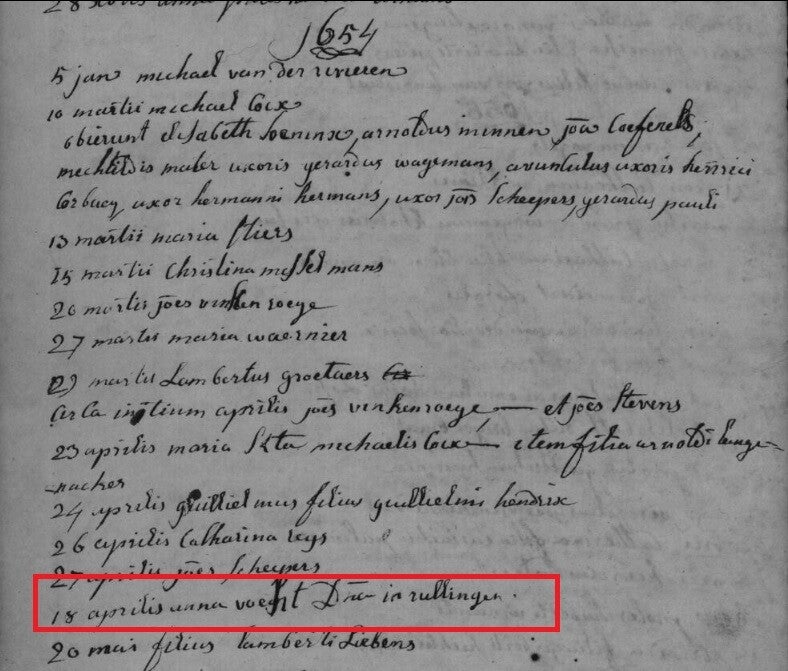 1654
5 jan michael van der rivieren
10 martii michael Coix
obierunt elisabeth soeninx, arnoldus minnen joes
mechteldis uxoris gerardus wagemans, avunculus uxoris henrici
uxor hermanni hermans, uxor jois scheypers, gerardus pauli
13 martii maria stiers
15 martii Christina mussel mans
20 martis joes vinken roege
27 martis maria waernier
29 martis Lambertus groetaers
Circa initium aprilis joes vinkenroege, — et joes Stevens
23 aprilis maria michaelis Coix — item filia arnoldi lange-
nacker
24 aprilis guillielmus filius guillielmi hendrix
26 aprilis Catharina reys
27 aprilis joes scheypers
18 aprilis anna voeght Dna in rullingen.
20 maii filius lamberti Liebens